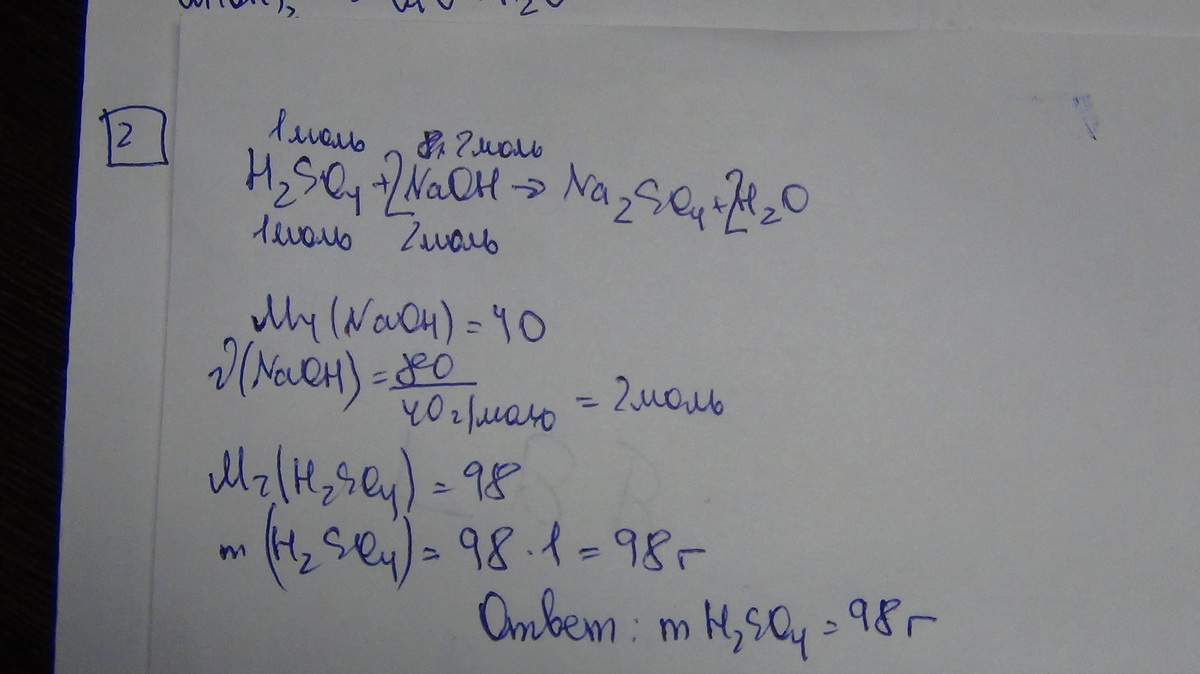 2
1 моль 2 моль
H₂SO₄ + 2NaOH → Na₂SO₄ + 2H₂O
1 моль 2 моль
Mr(NaOH) = 40
ν(NaOH) = 80 / 40 г/моль = 2 моль
Mr(H₂SO₄) = 98
m(H₂SO₄) = 98 · 1 = 98 г
Ответ: m H₂SO₄ = 98 г